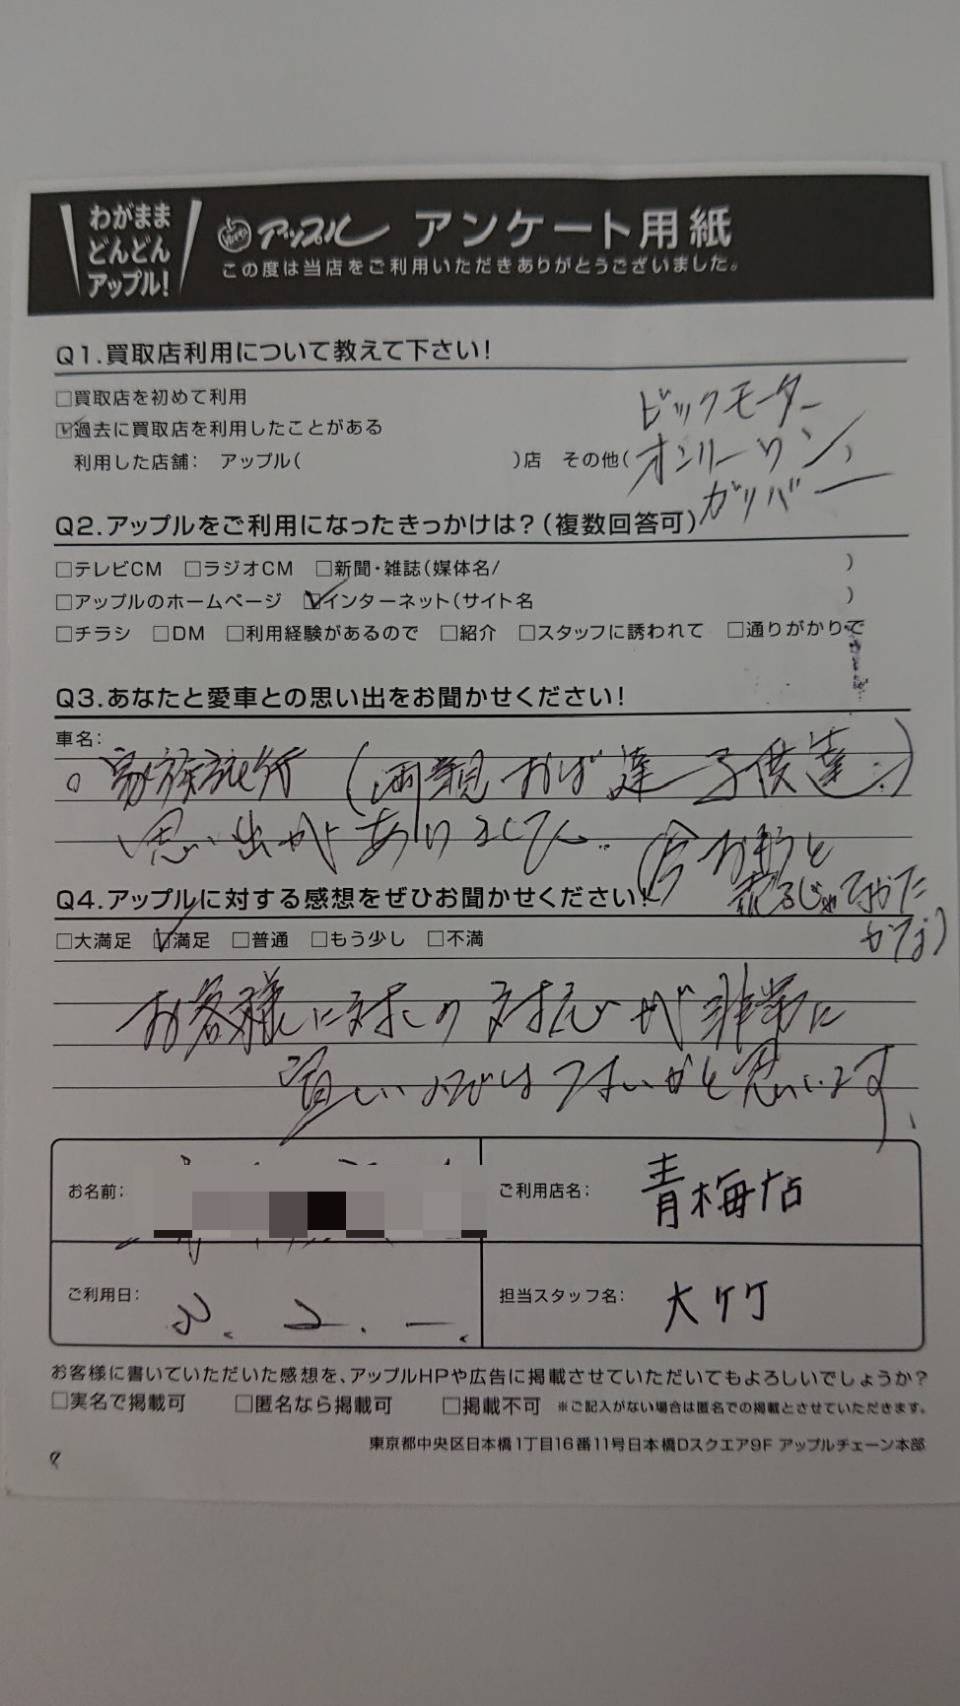 わがまま
どんどん
アップル!
アップル アンケート用紙
この度は当店をご利用いただきありがとうございました。
Q1.買取店利用について教えて下さい!
□買取店を初めて利用
☑過去に買取店を利用したことがある
利用した店舗: アップル( )店 その他(
ビックモーター
オンリーワン、
ガリバー
Q2.アップルをご利用になったきっかけは?(複数回答可)
□テレビCM □ラジオCM □新聞・雑誌(媒体名/ )
□アップルのホームページ ☑インターネット(サイト名 )
□チラシ □DM □利用経験があるので □紹介 □スタッフに誘われて □通りがかりで
Q3.あなたと愛車との思い出をお聞かせください!
車名:
。家族旅行 (両親 おば達 子供達)
思い出がありまして
(今 と
かな)
Q4.アップルに対する感想をぜひお聞かせください!
□大満足 ☑満足 □普通 □もう少し □不満
お客様に対しの対応が非常に
いのではないかと思います、
お名前:
ご利用店名: 青梅店
ご利用日: 2. 2. 一.
担当スタッフ名: 大竹
お客様に書いていただいた感想を、アップルHPや広告に掲載させていただいてもよろしいでしょうか?
□実名で掲載可 □匿名なら掲載可 □掲載不可 ※ご記入がない場合は匿名での掲載とさせていただきます。
東京都中央区日本橋1丁目16番11号日本橋Dスクエア9F アップルチェーン本部